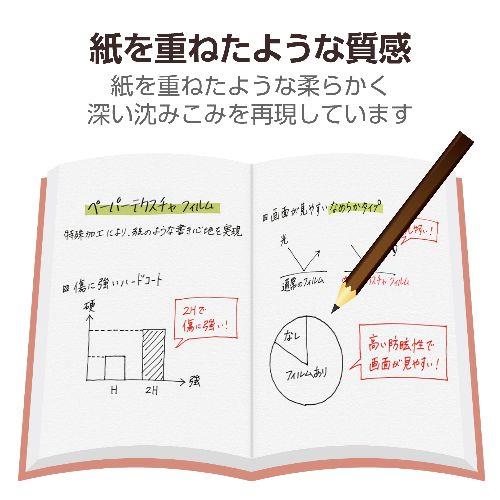 紙を重ねたような質感
紙を重ねたような柔らかく
深い沈みこみを再現しています
ペーパーテクスチャフィルム
特殊加工により、紙のような書き心地を実現
傷に強いハードコート
硬
2Hで
傷に強い!
H
2H
強
画面が見やすいなめらかタイプ
光
やすい!
通常のフィルム
スチャフィルム
なし
フィルムあり
高い防眩性で
画面が見やすい!